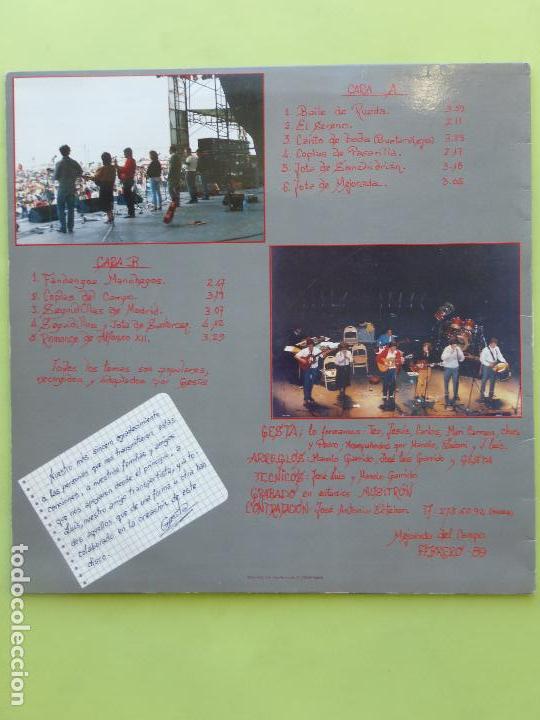 CARA A
1. Baile de Rueda. 3.53
2. El Sereno. 2.11
3. Canto de boda (Buenaventura)
4. Coplas de Pasarilla. 2.17
5. Jota de Sanchidrián. 3.18
6. Jota de Mejorada. 3.05
CARA B
1. Fandangos Manchegos. 2.47
2. Coplas del Campo. 3.19
3. Seguidillas de Madrid. 3.07
4. Seguidillas y Jota de
5. Romance de Alfonso XII. 3.29
Todos los temas son populares,
recogidos y adaptados por Gesta
Nuestro más sincero agradecimiento
a las personas que nos transmitieron estas
canciones, a nuestras familias y amigos
que nos apoyaron desde el principio, a
Luis, nuestro amigo transportista, y a to-
dos aquellos que de una forma u otra han
colaborado en la creación de este
disco.
Gesta
GESTA; lo formamos: Teo, Jesús, Carlos, Mari Carmen, Chus
y Pedro. Acompañados por Manolo, y Luis.
ARREGLOS: Manolo Garrido, José Luis Garrido y GESTA
TECNICOS: José Luis y Manolo Garrido
GRABADO en estudios MUSITRÓN
CONTRATACIÓN: José Antonio Esteban
Mejorada del Campo
FEBRERO-89
todocoleccion